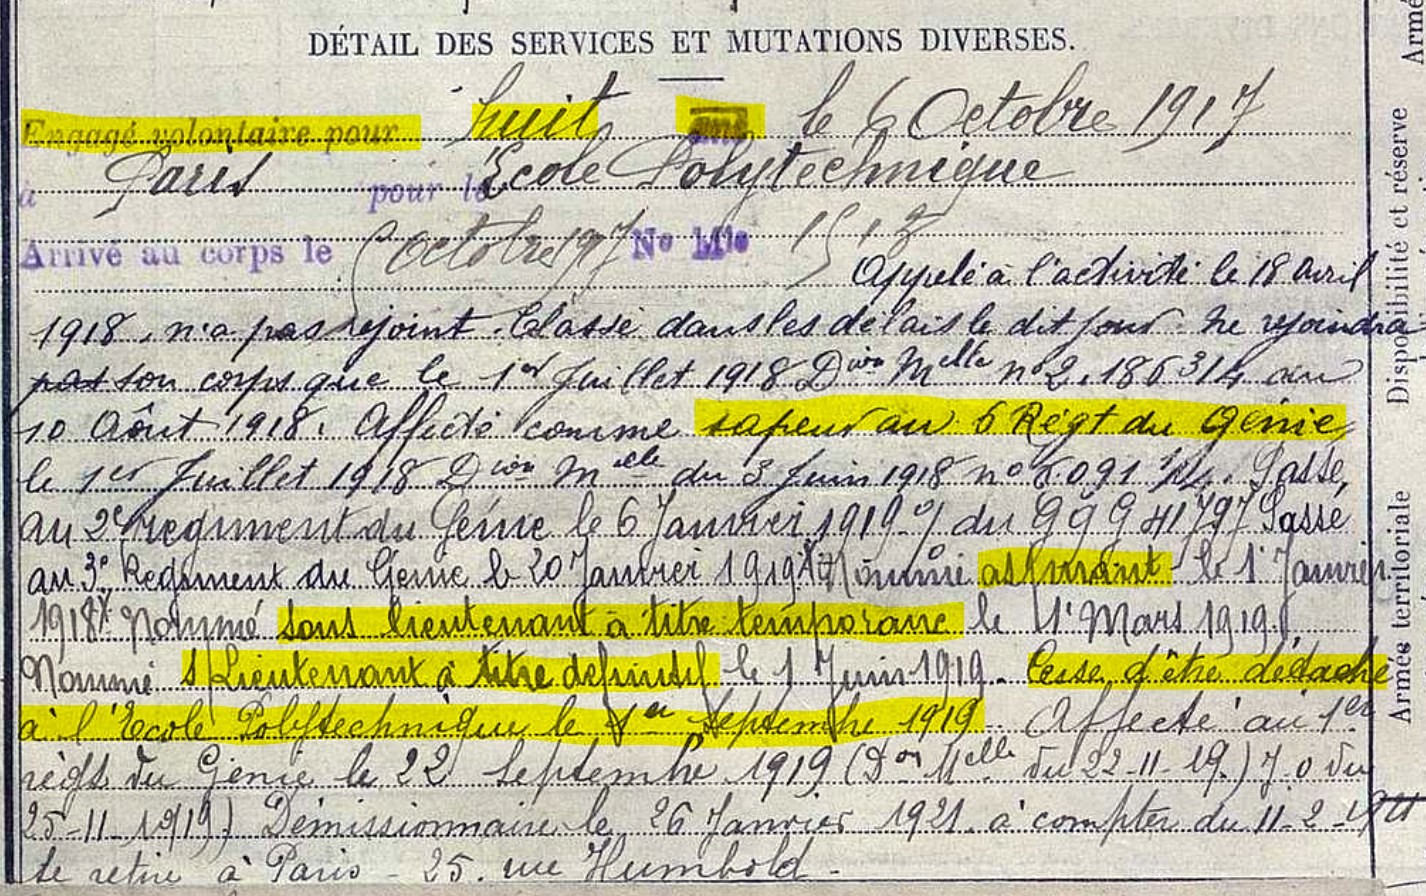 DÉTAIL DES SERVICES ET MUTATIONS DIVERSES.
Engagé volontaire pour huit ans le 6 Octobre 1917
à Paris pour l'Ecole Polytechnique
Arrivé au corps le Octobre 1917 No Mle
Appelé à l'activité le 18 avril
1918, n'a pas rejoint. Classé dans les délais le dit jour. Ne rejoindra
pas son corps que le 1er Juillet 1918 Dion Melle n° 2.1863 1/4 du
10 Août 1918. Affecté comme sapeur au 6 Régt du Génie
le 1er Juillet 1918 Dion Melle du 3 Juin 1918 n° 6.091 1/4. Passé
au 2e regiment du Génie le 6 Janvier 1919 du G Q G 41797 Passé
au 3e Regiment du Génie le 20 Janvier 1919 Nommé aspirant le 1r Janvier
1918. Nommé sous lieutenant à titre temporaire le 1r Mars 1919.
Nommé s/Lieutenant à titre definitif le 1 Juin 1919. Cesse d'être détaché
à l'Ecole Polytechnique le 1er Septembre 1919. Affecté au 1er
régt du Génie le 22 Septembre 1919 (Don Melle du 22-11-19.) J.O du
25-11-1919) Démissionnaire le 26 Janvier 1921 à compter du 11-2-1921
se retire à Paris - 25. rue Humbold.
Disponibilité et réserve
Armée territoriale
Armé